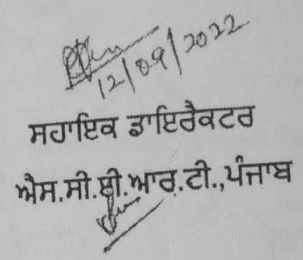 12/09/2022
ਸਹਾਇਕ ਡਾਇਰੈਕਟਰ
ਐਸ.ਸੀ.ਈ.ਆਰ.ਟੀ.,ਪੰਜਾਬ